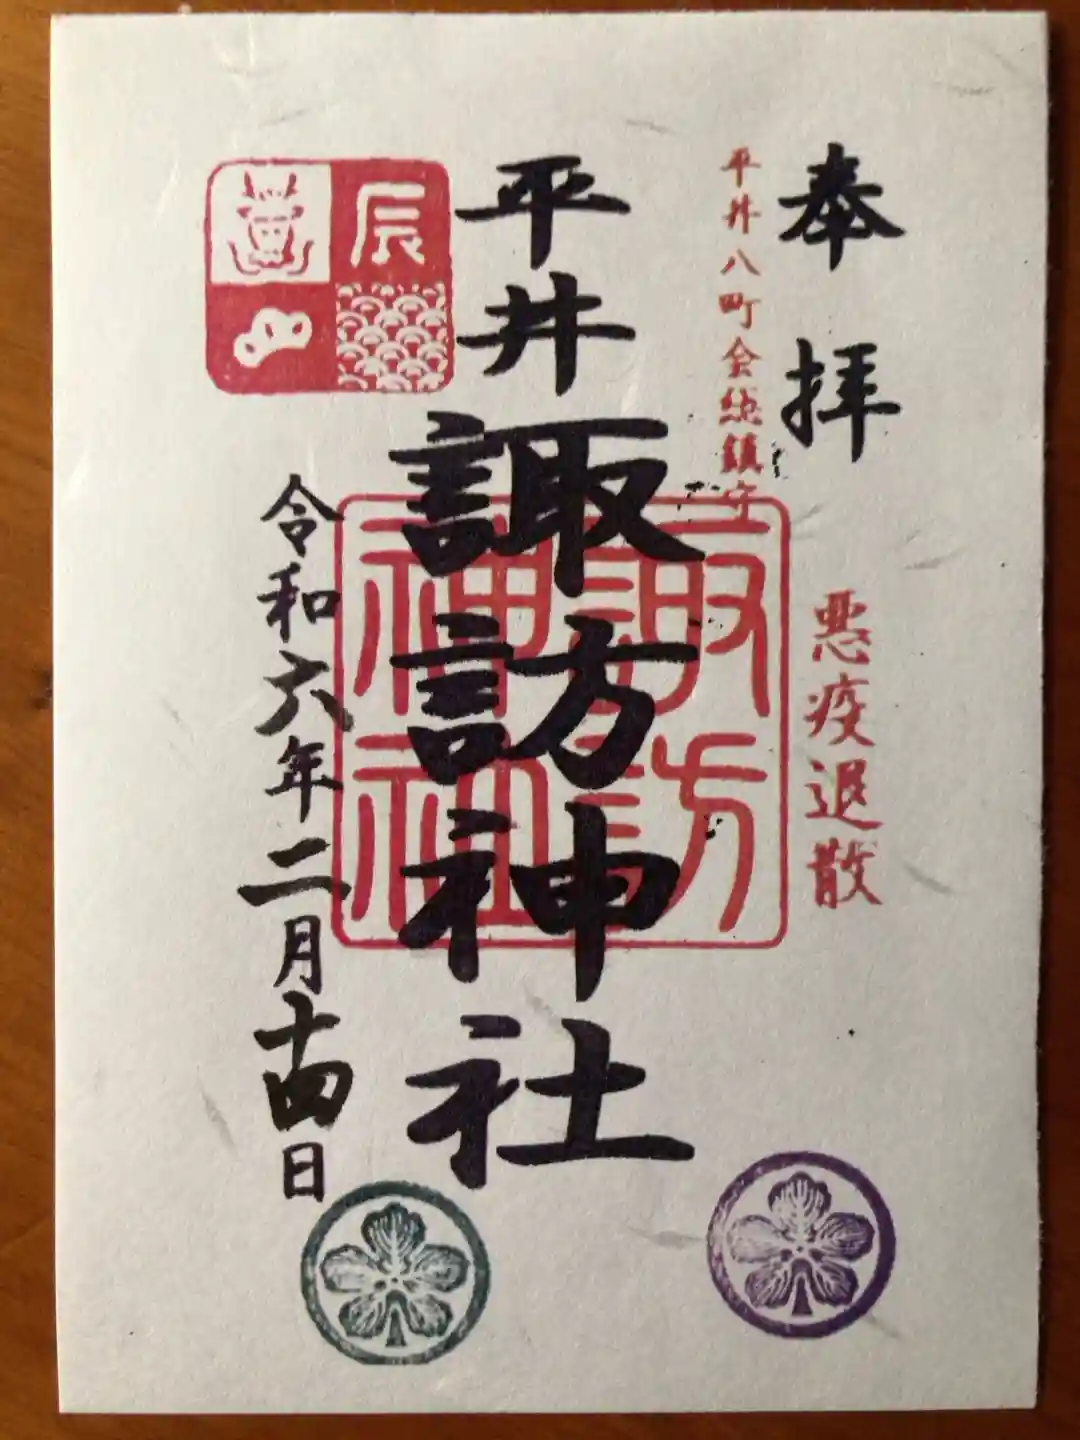 奉拝
悪疫退散
平井八町会総鎮守
平井諏訪神社
諏訪
神社
辰
令和六年二月十四日